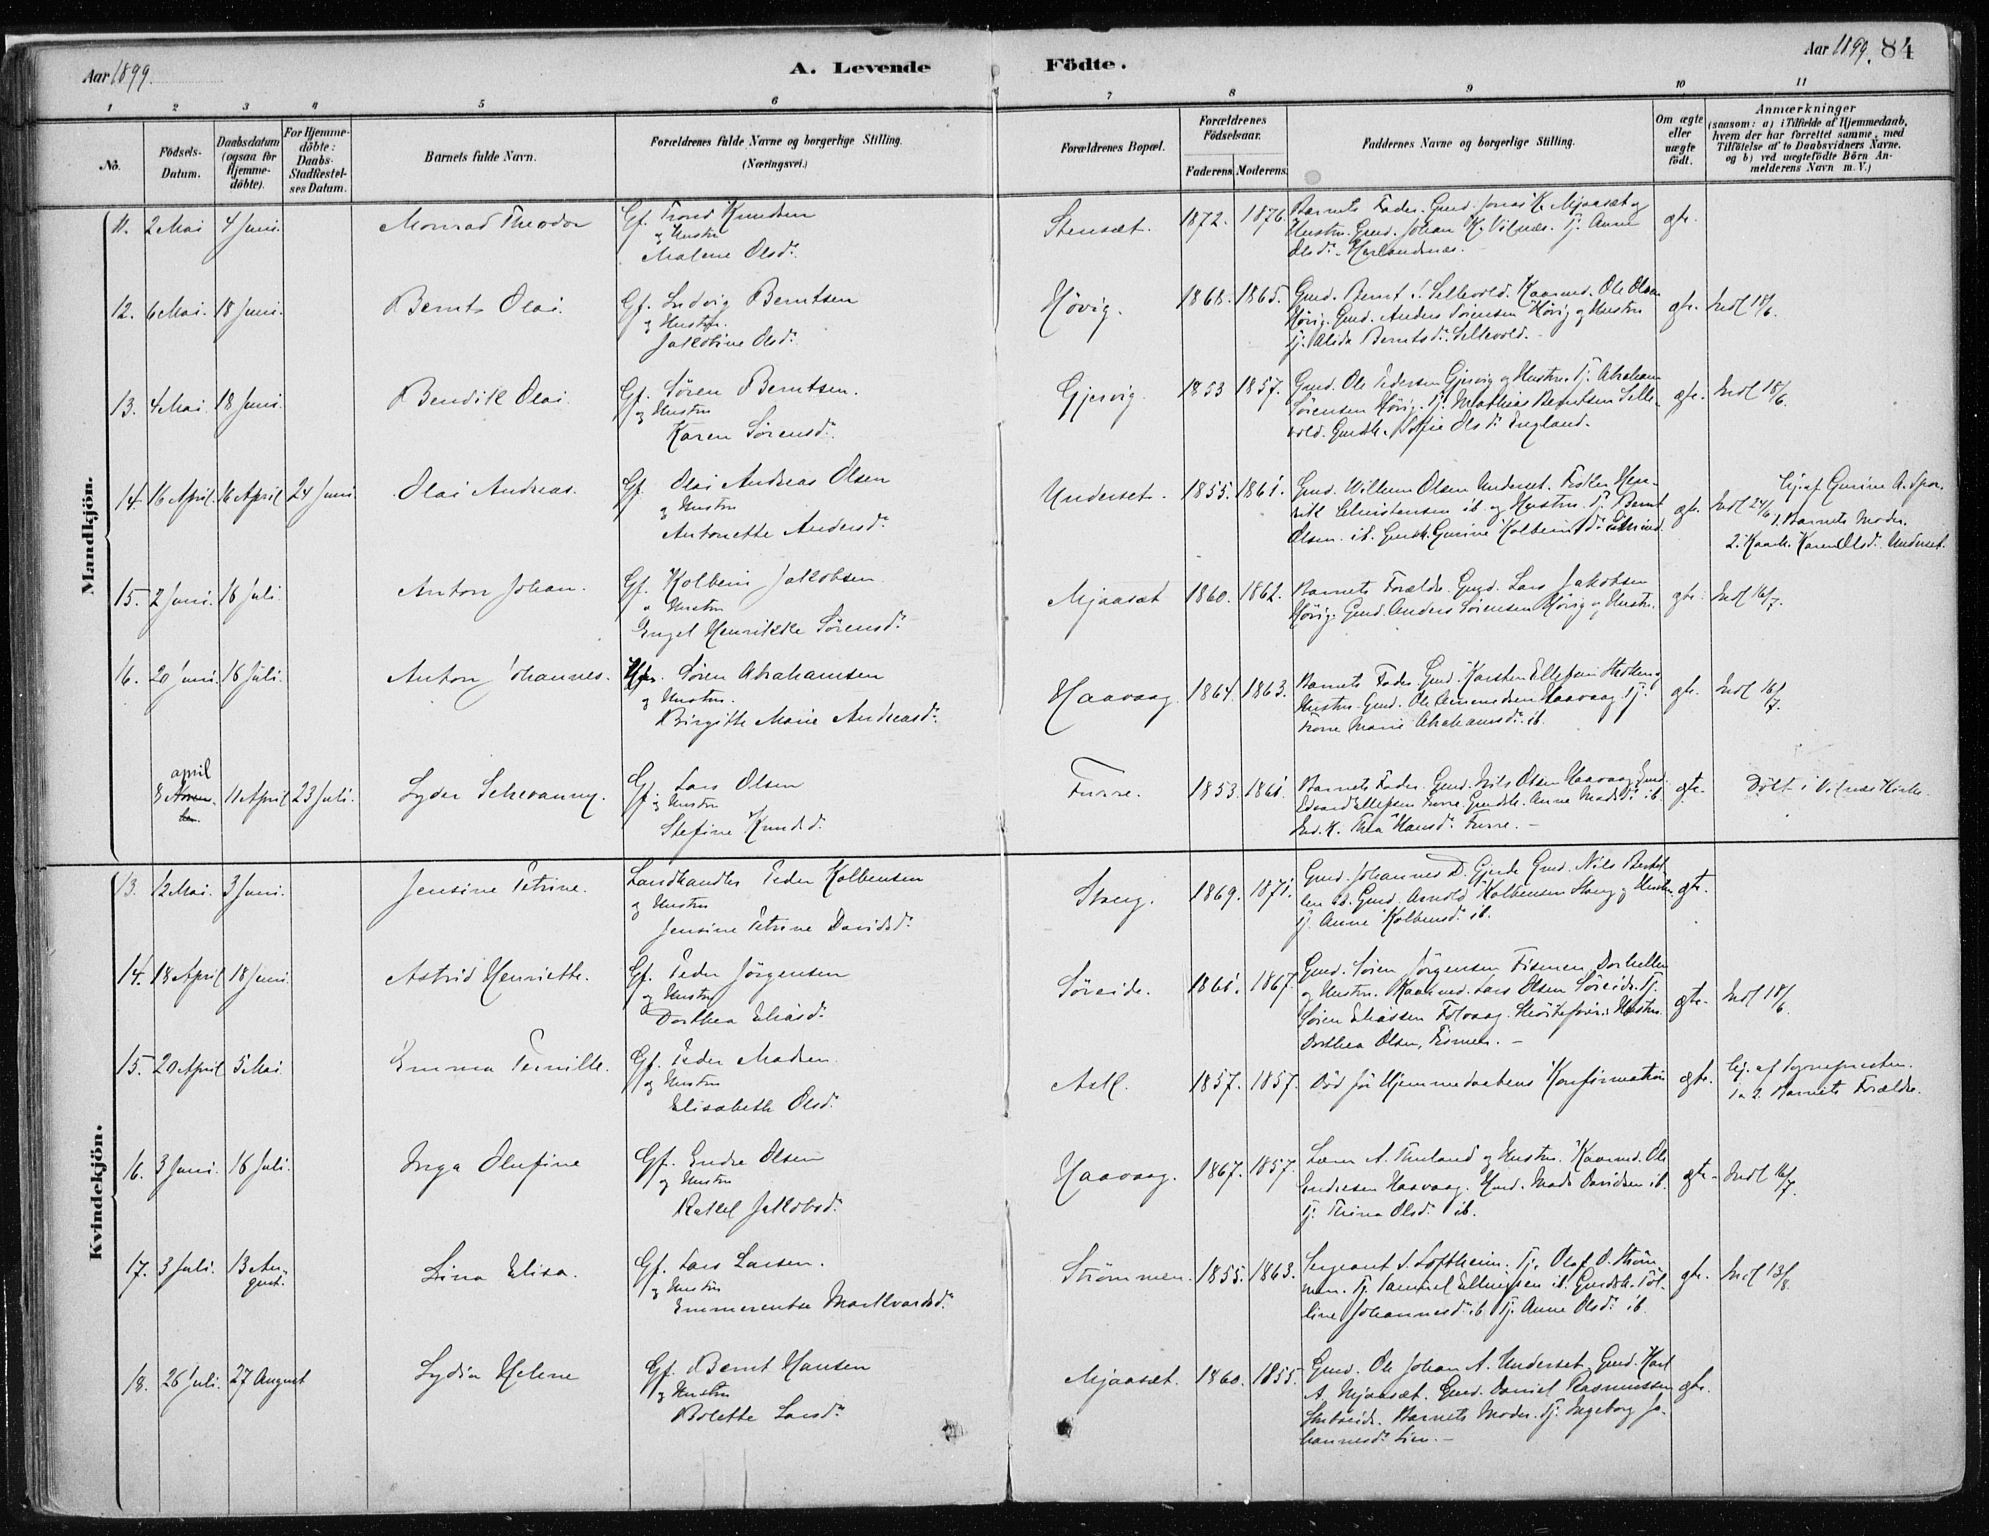 Aar 1899.
A. Levende Födte.
Aar 1899. 84
1 2 3 4 5 6 7 8 9 10 11
No.
Födsels-Datum.
Daabsdatum (ogsaa for Hjemme-döbte).
For Hjemme-döbte: Daabs-Stadfestel-ses Datum.
Barnets fulde Navn.
Forældrenes fulde Navne og borgerlige Stilling.
(Næringsvei.)
Forældrenes Bopæl.
Forældrenes Födselsaar.
Faderens. Moderens.
Faddernes Navne og borgerlige Stilling.
Om ægte eller uægte födt.
Anmærkninger
(saasom: a) i Tilfælde af Hjemmedaab,
hvem der har forrettet samme, med
Tilföielse af to Daabsvidners Navne.
og b) ved uægtefödte Börn An-
melderens Navn m. V.)
Mandkjön.
11. 2 Mai 4 Juni. Monrad Theodor
Gf. Trond Knudsen
og Hustru
Malene Olsd.
Stensæt. 1872. 1876.
Barnets Fader. Gmd. Jonas K. Mjaasæt og
Hustru. Gmd. Johan K. Vilnæs. Tj. Anne
Olsd. Herlandsnæs.
gte.
12. 6 Mai. 18 Juni. Bernt Olai.
Gf. Ludvig Berntsen
og Hustru.
Jakobine Olsd.
Høvig. 1868. 1865.
Gmd. Bernt S. Sellevold. Kaarmd. Ole Olsen
Høvig. Gmd. Anders Sørensen Høvig og Hustru
Tj. Alida Berntsd. Sellevold.
gte. Indl 18/6.
13. 4 Mai. 18 Juni. Bendik Olai.
Gf. Søren Berntsen.
og Hustru
Karen Sørensd.
Gjervig. 1853 1857.
Gmd. Ole Pedersen Gjervig og Hustru. Tj. Abraham
Sørensen Høvig. Tj. Mathias Berntsen Selle-
vold. Gmdk. Sofie Olsd. England.
gte. Indl 18/6.
14. 16 April. 16 April 24 Juni Olai Andreas.
Gf. Olai Andreas Olsen
og Hustru
Antonette Andersd.
Underset. 1855. 1861.
Gmd. Willum Olsen Underset. Hen-
rik Christensen ib. og Hustru. Tj. Bernt
Olsen. ib. Gmdk. Gurine Kolbeinsd.
gte. Indl 24/6 Hj. af Gurine A.
1. Barnets Moder.
2. Kaark. Karen Olsd. Underset.
15. 2 Juni. 16 Juli. Anton Johan.
Gf. Kolbein Jakobsen.
og Hustru
Engel Henrikke Sørensd.
Mjaasæt 1860. 1862.
Barnets Forældre. Gmd. Lars Jakobsen
Høvig. Gmd. Anders Sørensen Høvig og Hustru.
gte. Indl 16/7.
16. 20 Juni. 16 Juli. Anton Johannes.
Søren Abrahamsen
og Hustru.
Birgitte Marie Andreasd.
Haavaag 1864. 1863.
Barnets Fader. Gmd. Karsten Ellefsen og
Hustru. Gmd. Ole Haavaag. Tj.
Marie Abrahamsd. ib.
gte. Indl 16/7.
april
8 11 April 23 Juli. Lyder Schevanny.
Gf. Lars Olsen
og Hustru
Stefine Knudsd.
Furre. 1853. 1861.
Barnets Fader. Gmd. Nils Olsen Haavaag. Gmd.
Edvard Ellefsen Furre. Gmdk. Anne Madsd. ib.
Ind. K. Thea Hansd. Furre.
gte. Døbt i Vilnæs Kirke.
Kvindekjön.
13. 12 Mai. 3 Juni. Jensine Petrine.
Landhandler Peder Kolbensen
og Hustru
Jensine Petrine Davidsd.
1869. 1871.
Gmd. Johannes D. Gjerde. Gmd. Nils
Gmd. Arnold Kolbensen og Hustru.
Tj. Anne Kolbensd. ib.
gte.
14. 18 April 18 Juni Astrid Henriette.
Gf. Peder Jørgensen
og Hustru
Dorthea Eliasd.
Søreide. 1861. 1867.
Gmd. Søren Jørgensen
og Hustru. Kaarmd. Lars Olsen Søreide. Tj.
Søren Eliassen Hustru.
Dorthea Olsen,
gte. Indl 18/6
15. 20 April 5 Mai. Emma Pernille.
Gf. Peder Madsen.
og Hustru
Elisabeth Olsd.
Ask. 1857. 1857.
Død før Hjemmedaabens Konfirmation
gte. Hj. af Sognepresten.
1 & 2. Barnets Forældre.
16. 3 Juni. 16 Juli. Inga Olufine
Gf. Endre Olsen
og Hustru
Rakel Jakobsd.
Haavaag. 1867. 1857.
Lærer A. og Hustru. Kaarmd. Ole
Endresen Haavaag. Gmd. Mads Davidsen ib.
Tj. Olsd. ib.
gte. Indl 16/7.
17. 3 Juli. 13 August. Lina Elisa.
Gf. Lars Larsen.
og Hustru
Emmerentse Markvardsd.
Strømmen. 1855. 1863.
Sergeant S. Loftheim. Tj. Olaf O. Strøm-
men. Tj. Samuel Ellingsen ib. Gmdk.
Johannesd. ib. Tj. Anne Olsd. ib.
gte. Indl 13/8.
18. 26 Juli. 27 August Lydia Helene
Gf. Bernt Hansen
og Hustru
Bolette Larsd.
Mjaasæt. 1860. 1855.
Gmd. Ole Johan A. Underset. Gmd. Karl
A. Mjaasæt. Gmd. Daniel Rasmussen
Barnets Moder. Tj. Ingeborg Jo-
hannesd. Lien.
gte.